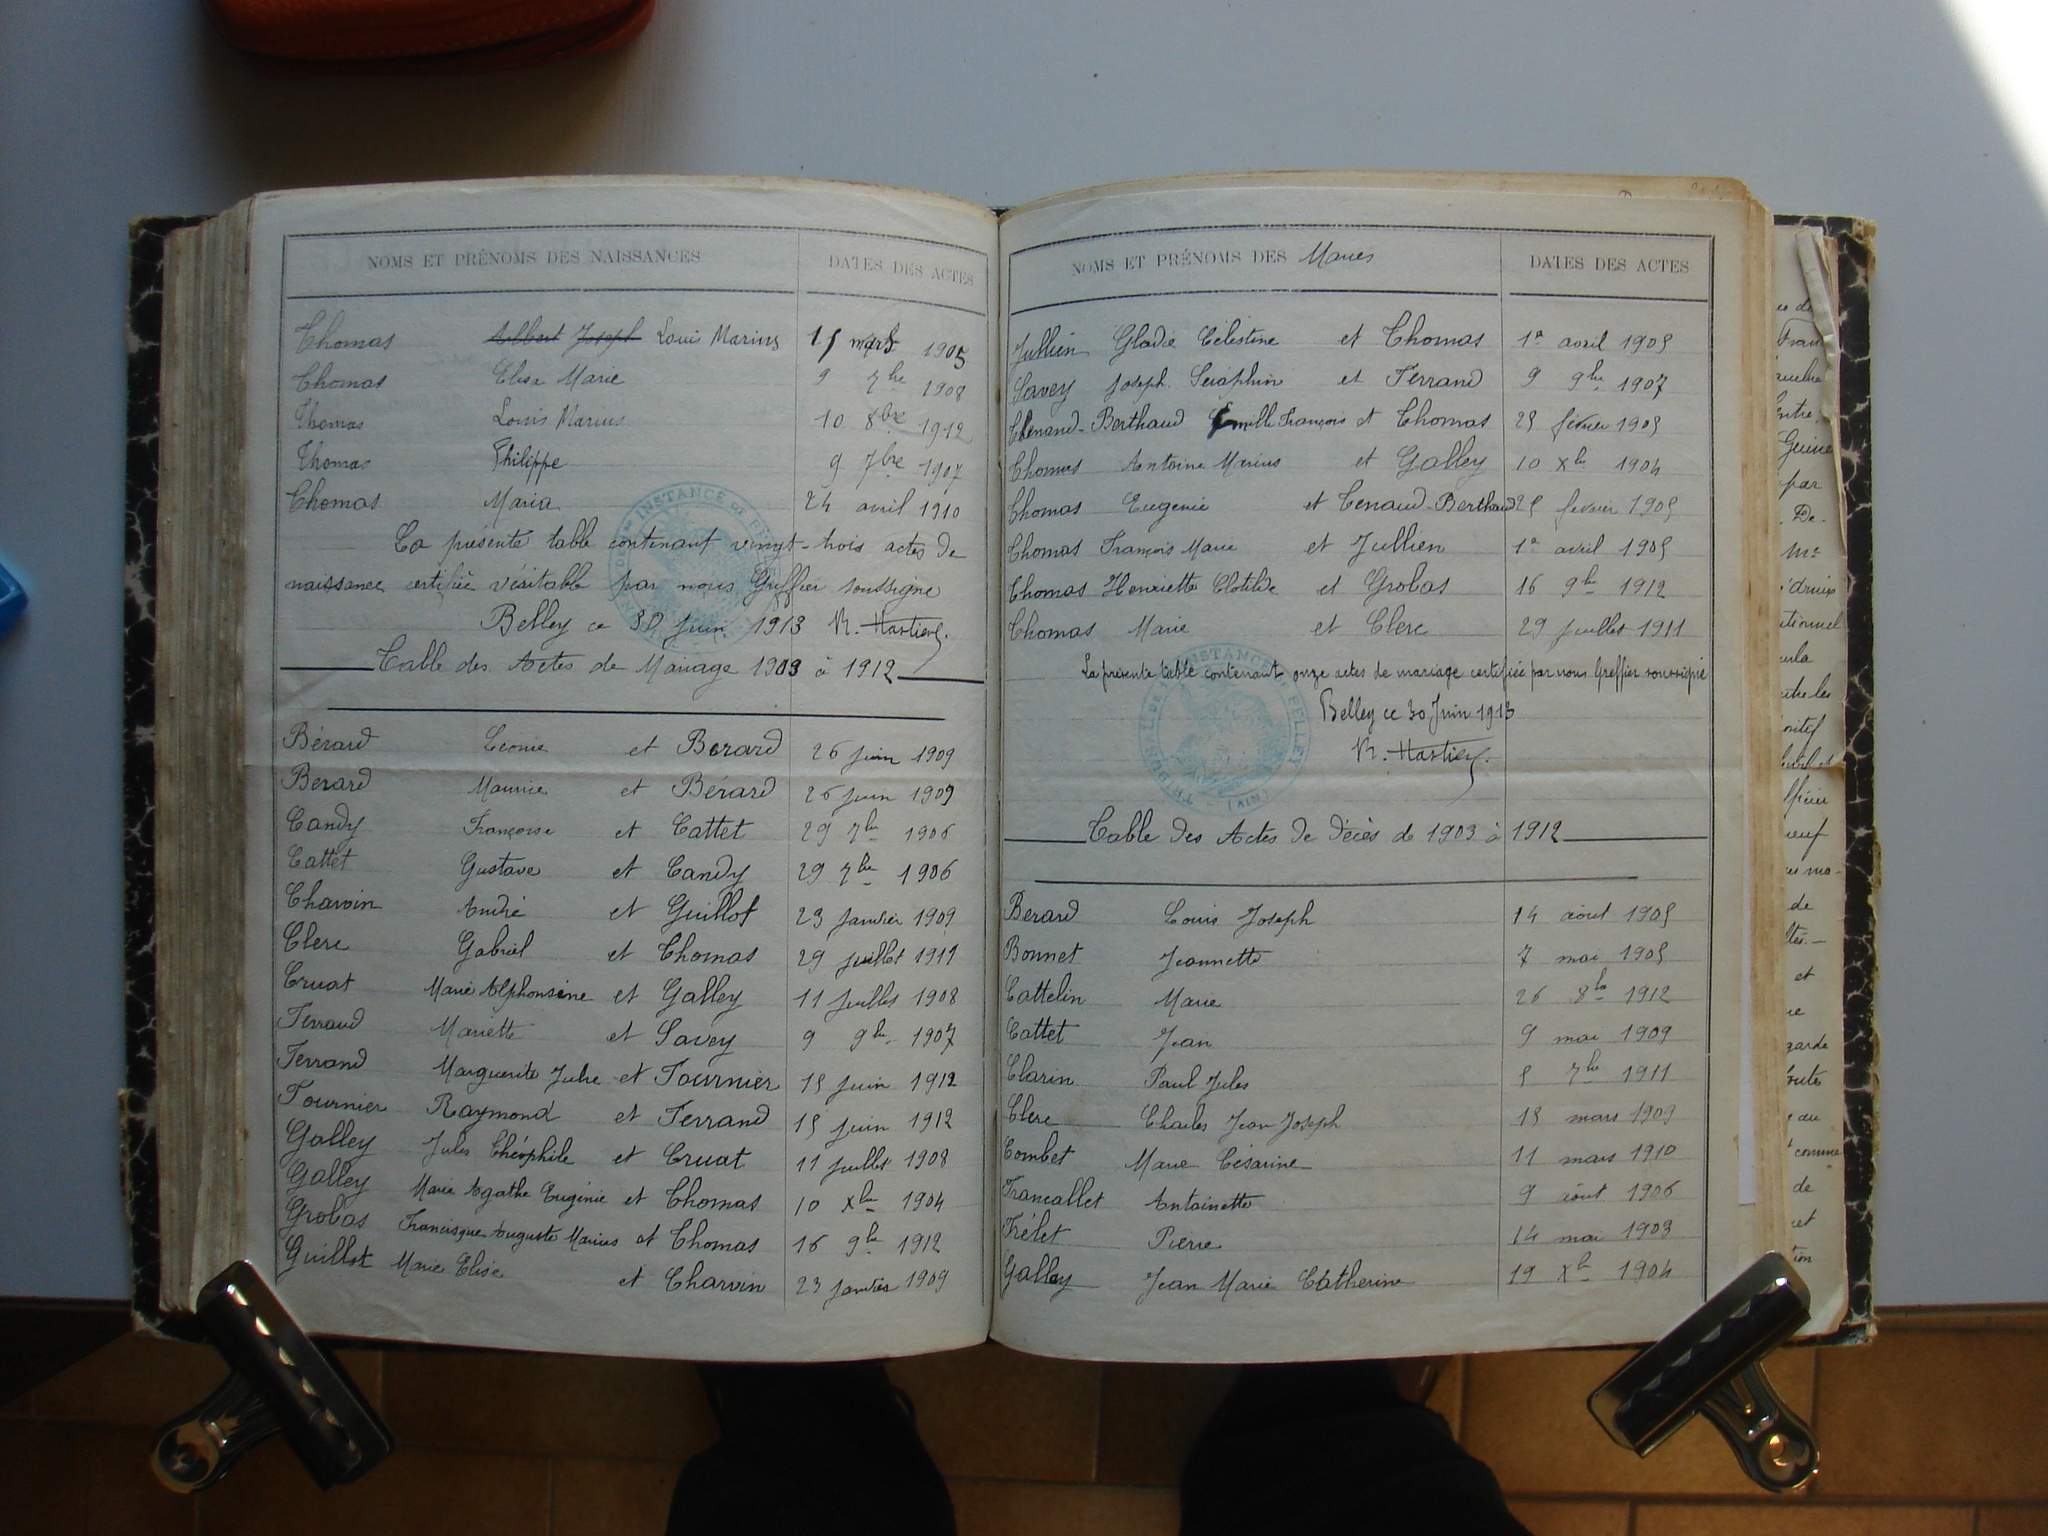 NOMS ET PRÉNOMS DES NAISSANCES DATES DES ACTES
Thomas Albert Joseph Louis Marius 15 mars 1905
Thomas Elise Marie 9 7bre 1908
Thomas Louis Marius 10 8bre 1912
Thomas Philippe 9 7bre 1907
Thomas Maria 24 avril 1910
La présente table contenant vingt-trois actes de
naissance certifiée véritable par nous Greffier soussigné
Belley ce 30 Juin 1913
Table des Actes de Mariage 1903 à 1912
Bérard Léonie et Berard 26 juin 1909
Berard Maurice et Bérard 26 juin 1909
Candy Françoise et Cattet 29 7bre 1906
Cattet Gustave et Candy 29 7bre 1906
Charvin André et Guillot 23 janvier 1909
Clerc Gabriel et Thomas 29 juillet 1911
Cruat Marie Alphonsine et Galley 11 juillet 1908
Ferrand Mariette et Savey 9 9bre 1907
Ferrand Marguerite Julie et Fournier 15 juin 1912
Fournier Raymond et Ferrand 15 juin 1912
Galley Jules Théophile et Cruat 11 juillet 1908
Galley Marie Agathe Eugénie et Thomas 10 Xbre 1904
Grobas Francisque Auguste Marius et Thomas 16 9bre 1912
Guillot Marie Elise et Charvin 23 janvier 1909
NOMS ET PRÉNOMS DES Mariés DATES DES ACTES
Jullien Gladie Célestine et Thomas 1er avril 1905
Savey Joseph Séraphin et Ferrand 9 9bre 1907
Chenand-Berthaud Emille François et Thomas 25 février 1905
Thomas Antoine Marius et Galley 10 Xbre 1904
Thomas Eugenie et Tenaud-Berthaud 25 février 1905
Thomas François Marie et Jullien 1er avril 1905
Thomas Henriette Clotilde et Grobas 16 9bre 1912
Thomas Marie et Clerc 29 juillet 1911
La présente table contenant onze actes de mariage certifiée par nous Greffier soussigné
Belley ce 30 Juin 1913
Table des Actes de décès de 1903 à 1912
Berard Louis Joseph 14 août 1905
Bonnet Jeannette 7 mai 1905
Cattelin Marie 26 8bre 1912
Cattet Jean 9 mai 1909
Clarin Paul Jules 5 7bre 1911
Clerc Charles Jean Joseph 15 mars 1909
Combet Marie Césarine 11 mars 1910
Francallet Antoinette 9 août 1906
Frélet Pierre 14 mai 1903
Galley Jean Marie Catherine 19 Xbre 1904